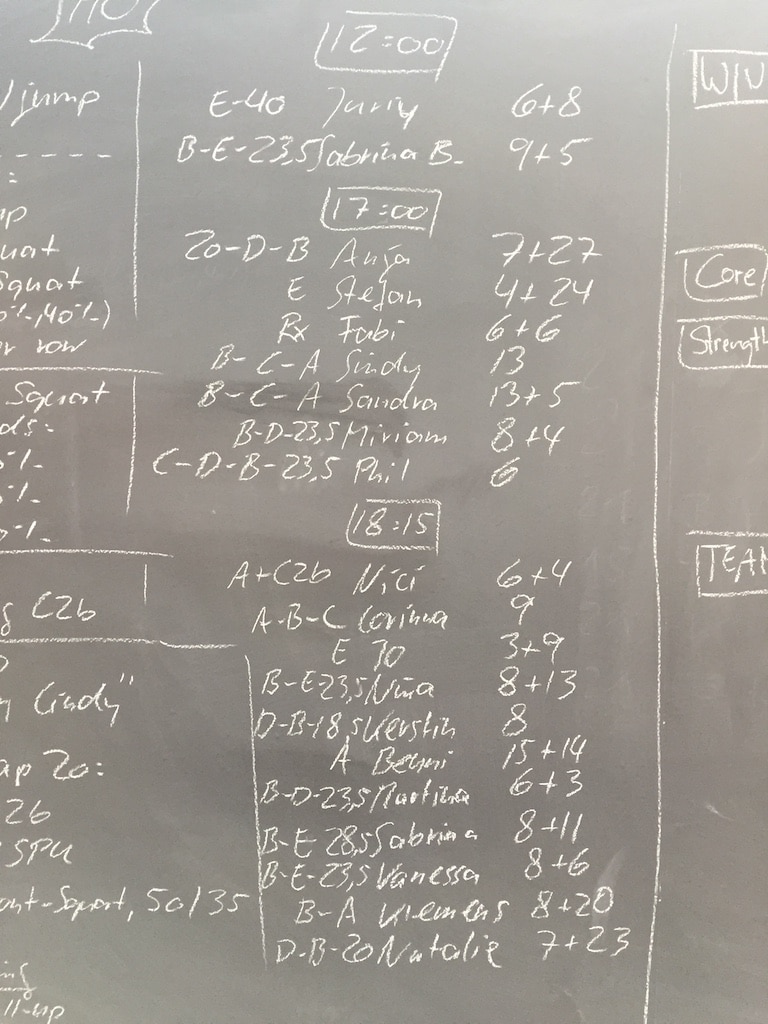 12:00
E-40 Juriy 6+8
B-E-23,5 Sabrina B. 9+5
17:00
20-D-B Anja 7+27
E Stefan 4+24
Rx Fabi 6+6
B-C-A Sindy 13
B-C-A Sandra 13+5
B-D-23,5 Miriam 8+4
C-D-B-23,5 Phil 6
18:15
A+C2b Nici 6+4
A-B-C Corinna 9
E Jo 3+9
B-E-23,5 Nina 8+13
D-B-18,5 Kerstin 8
A Benni 15+14
B-D-23,5 Martina 6+3
B-E-28,5 Sabrina 8+11
B-E-23,5 Vanessa 8+6
B-A Klemens 8+20
D-B-20 Natalie 7+23
/jump
uat
Squat
or row
Squat
ds:
C2b
Cindy"
ap 20:
26
SPU
ont-Squat, 50/35
ng
ll-up
Core
Strength
TEAM